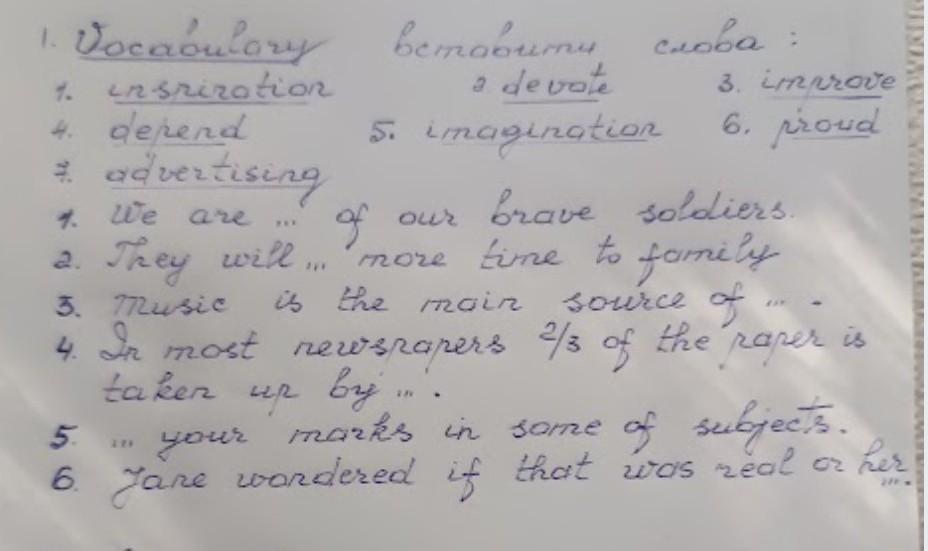 1. Vocabulary вставити слова :
1. inspiration 2 devote 3. improve
4. depend 5. imagination 6. proud
7. advertising
1. We are ... of our brave soldiers.
2. They will ... more time to family
3. Music is the main source of ... .
4. In most newspapers 2/3 of the paper is
taken up by ... .
5. ... your marks in some of subjects.
6. Jane wondered if that was real or her
... .